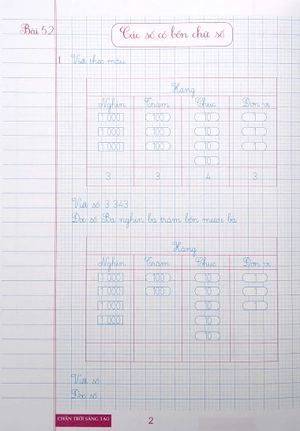 Bài 52
Các số có bốn chữ số
1 Viết theo mẫu.
Hàng
Nghìn Trăm Chục Đơn vị
1 000 100 10 1
1 000 100 10 1
1 000 100 10 1
10
3 3 4 3
Viết số: 3 343
Đọc số: Ba nghìn ba trăm bốn mươi ba
Hàng
Nghìn Trăm Chục Đơn vị
1 000 100 10 1
1 000 100 10 1
1 000 10 1
1 000 10
10
Viết số:
Đọc số:
CHÂN TRỜI SÁNG TẠO 2